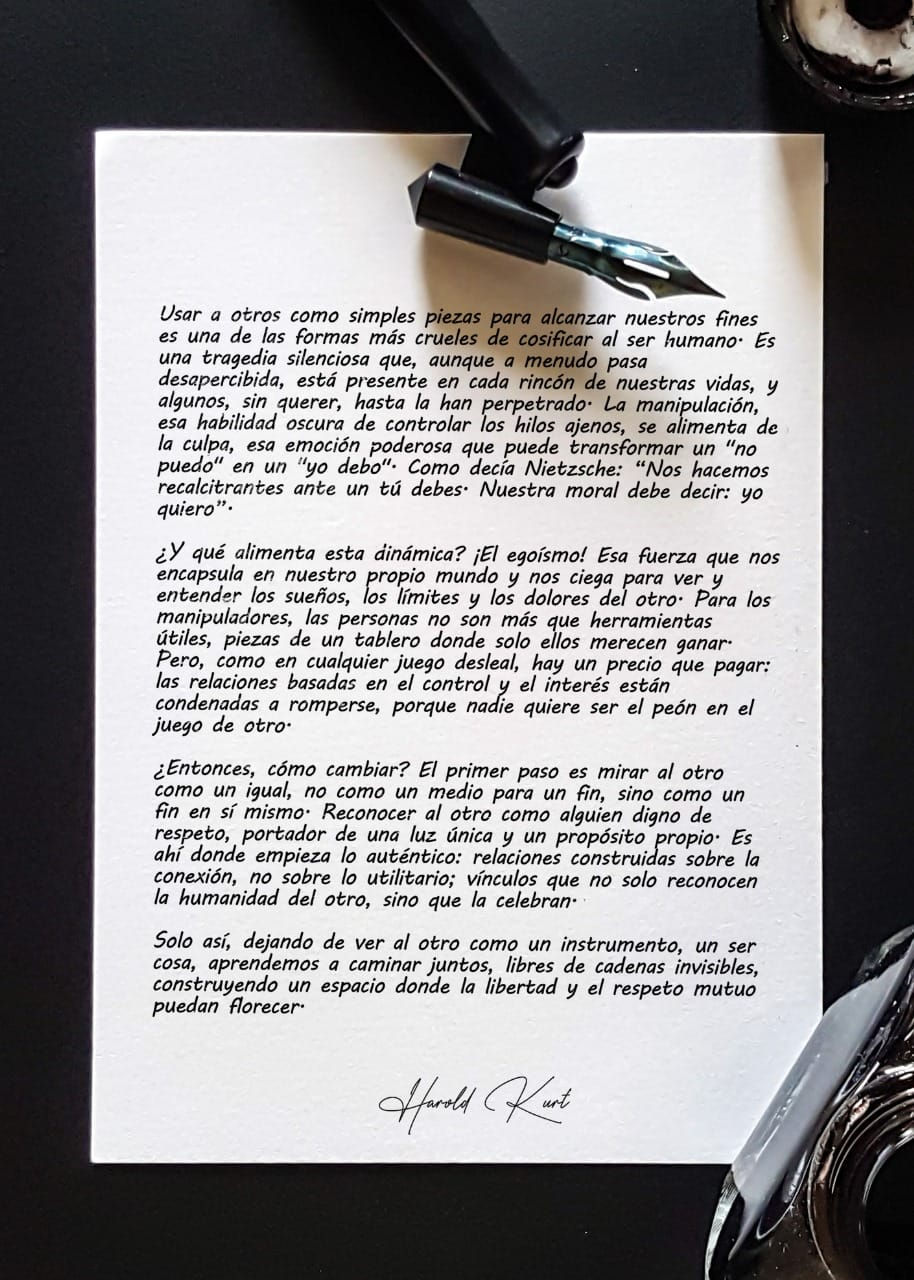 Usar a otros como simples piezas para alcanzar nuestros fines
es una de las formas más crueles de cosificar al ser humano· Es
una tragedia silenciosa que, aunque a menudo pasa
desapercibida, está presente en cada rincón de nuestras vidas, y
algunos, sin querer, hasta la han perpetrado· La manipulación,
esa habilidad oscura de controlar los hilos ajenos, se alimenta de
la culpa, esa emoción poderosa que puede transformar un "no
puedo" en un "yo debo"· Como decía Nietzsche: “Nos hacemos
recalcitrantes ante un tú debes· Nuestra moral debe decir: yo
quiero”·
¿Y qué alimenta esta dinámica? ¡El egoísmo! Esa fuerza que nos
encapsula en nuestro propio mundo y nos ciega para ver y
entender los sueños, los límites y los dolores del otro· Para los
manipuladores, las personas no son más que herramientas
útiles, piezas de un tablero donde solo ellos merecen ganar·
Pero, como en cualquier juego desleal, hay un precio que pagar:
las relaciones basadas en el control y el interés están
condenadas a romperse, porque nadie quiere ser el peón en el
juego de otro·
¿Entonces, cómo cambiar? El primer paso es mirar al otro
como un igual, no como un medio para un fin, sino como un
fin en sí mismo· Reconocer al otro como alguien digno de
respeto, portador de una luz única y un propósito propio· Es
ahí donde empieza lo auténtico: relaciones construidas sobre la
conexión, no sobre lo utilitario; vínculos que no solo reconocen
la humanidad del otro, sino que la celebran·
Solo así, dejando de ver al otro como un instrumento, un ser
cosa, aprendemos a caminar juntos, libres de cadenas invisibles,
construyendo un espacio donde la libertad y el respeto mutuo
puedan florecer·
Harold Kurt